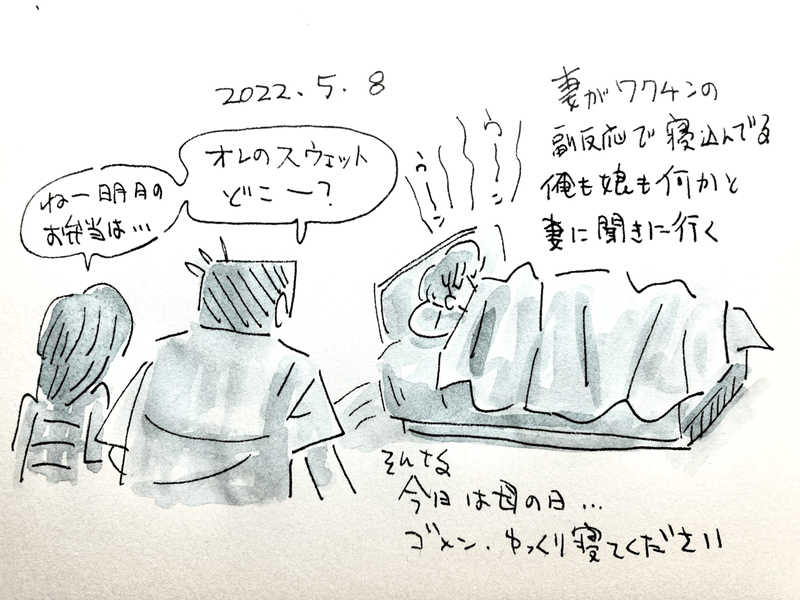 2022.5.8
妻がワクチンの
副反応で寝込んでる
俺も娘も何かと
妻に聞きに行く
オレのスウェット
どこー?
ねー明日の
お弁当は…
うーん
うーん
そんな
今日は母の日…
ゴメン、ゆっくり寝てください